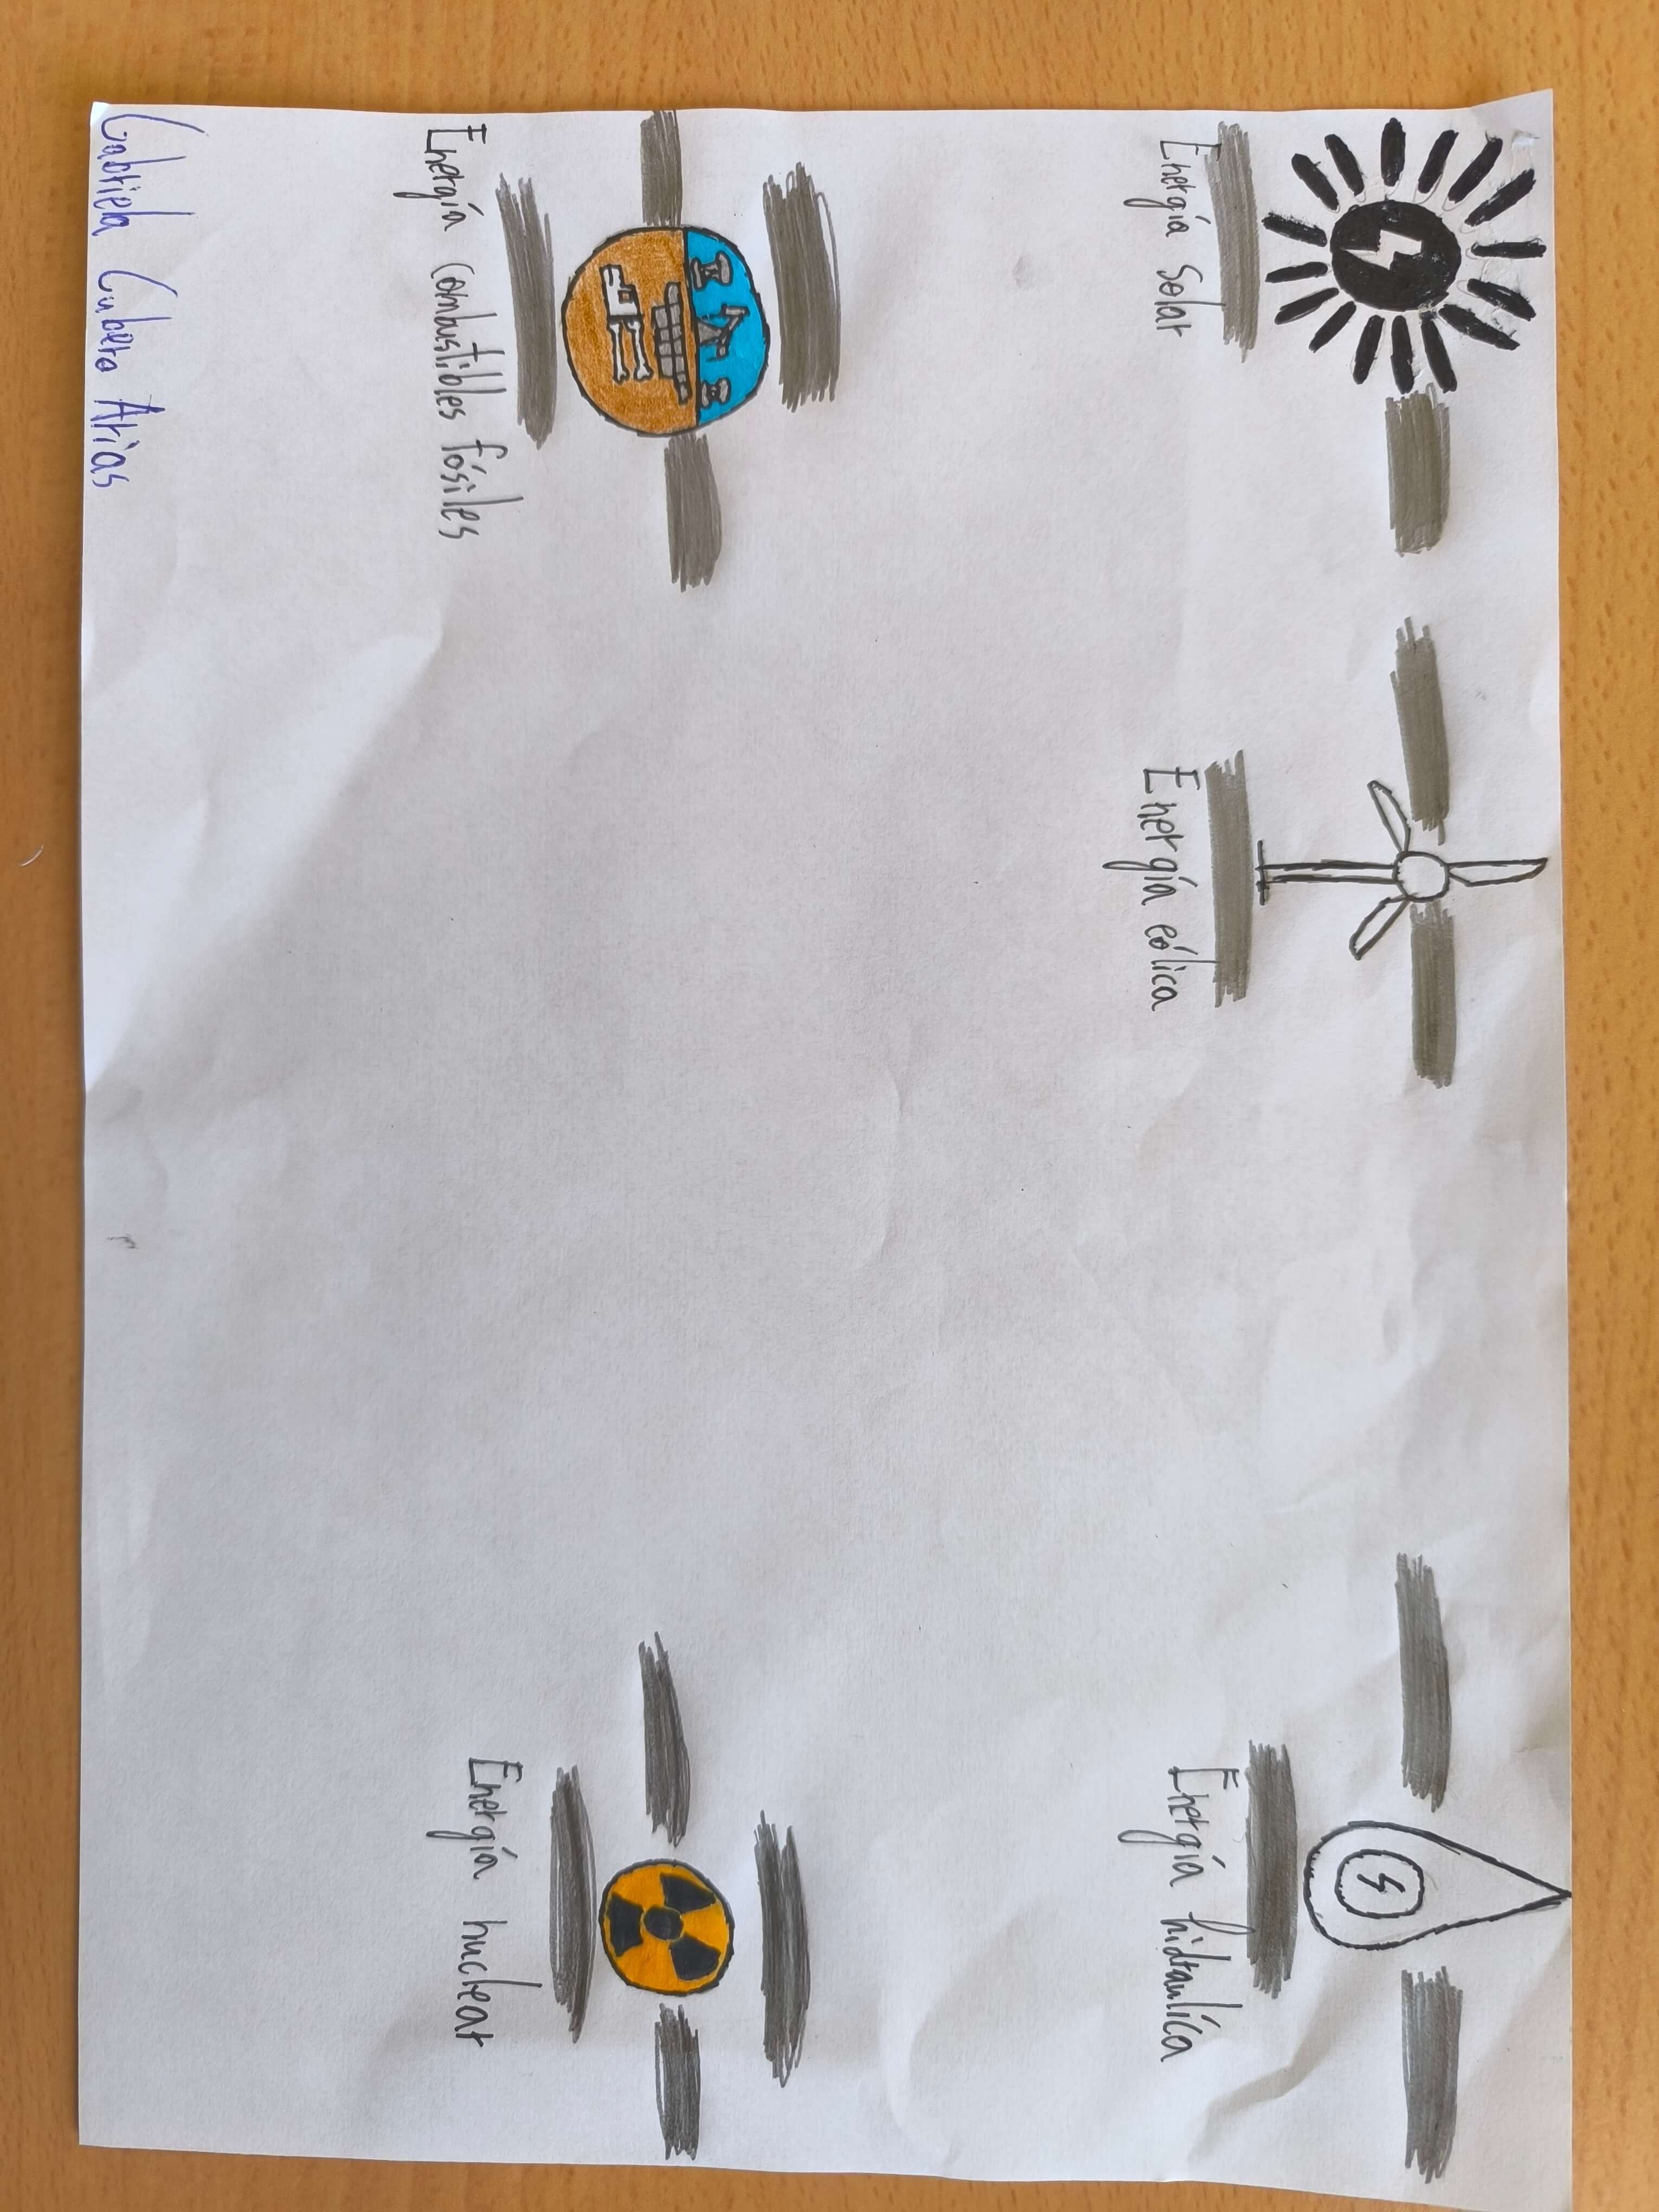 Energía Solar
Energía eólica
Energía hidraulíca
Energía combustibles fósiles
Energía nuclear
Gabriela Cubero Arias